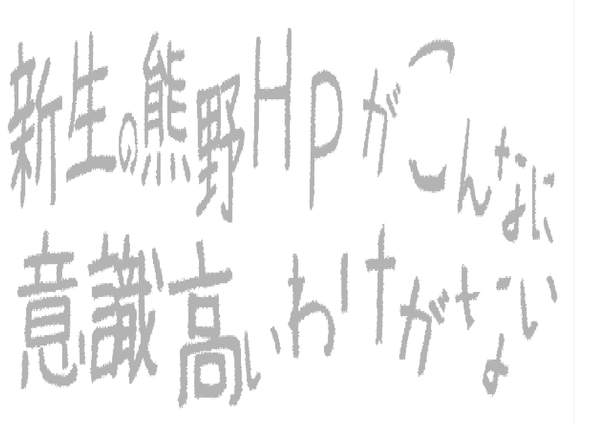 新生の熊野Hpがこんなに
意識高いわけがない